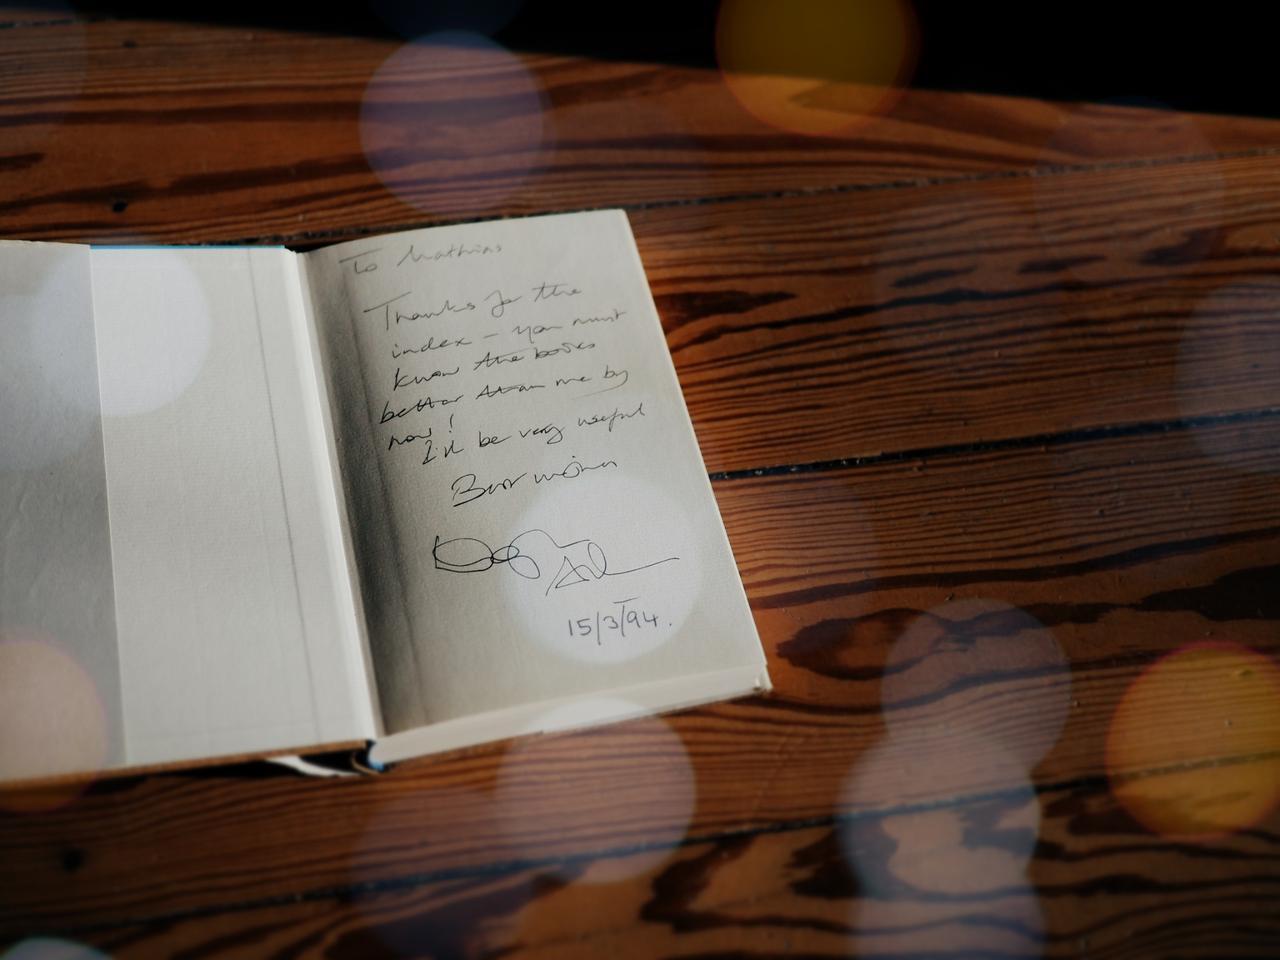 To Mathias
Thanks for the
index – you must
know the books
better than me by
now!
It'll be very useful
Best wishes
15/3/94.